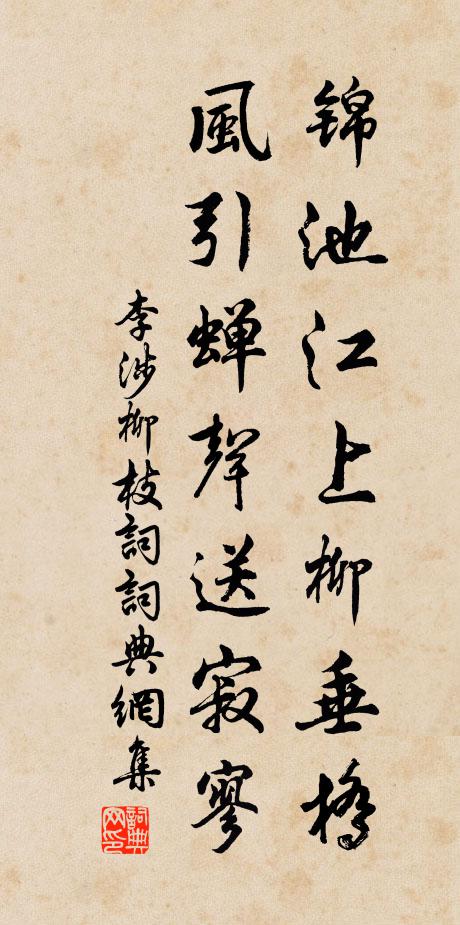 锦池江上柳垂橋
風引蟬聲送寂寥
李涉柳枝詞詞典網集
詞典网印